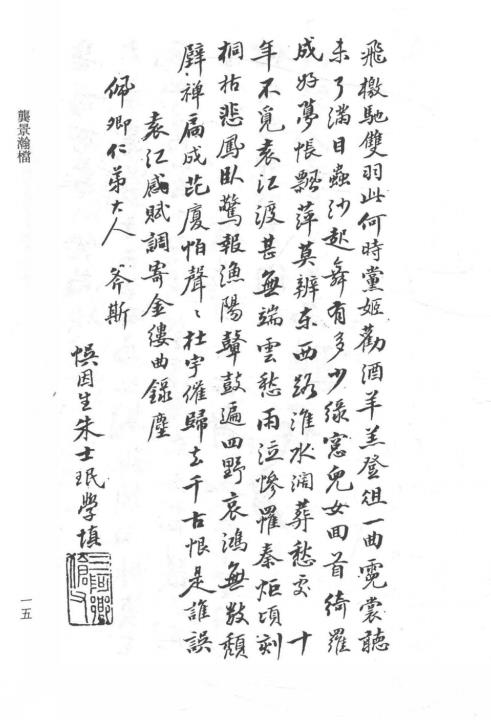 飛檄馳雙羽此何時黨姬勸酒羊羔登俎一曲霓裳聽
未了滿目蟲沙起舞有多少綠窓兒女回首綺羅
成好夢悵飄萍莫辨东西路淮水濶葬愁處 十
年不覓袁江渡甚無端雲愁雨泣慘罹秦炬頃刻
桐枯悲鳳臥驚報漁陽鼙鼓遍四野哀鴻無数頹
壁禅扃成芘廈怕聲〻杜宇催歸去千古恨是誰誤
袁江感賦調寄金縷曲錄塵
佩卿仁弟大人 斧斯
悞因生朱士珉學填
龔景瀚檔
一五